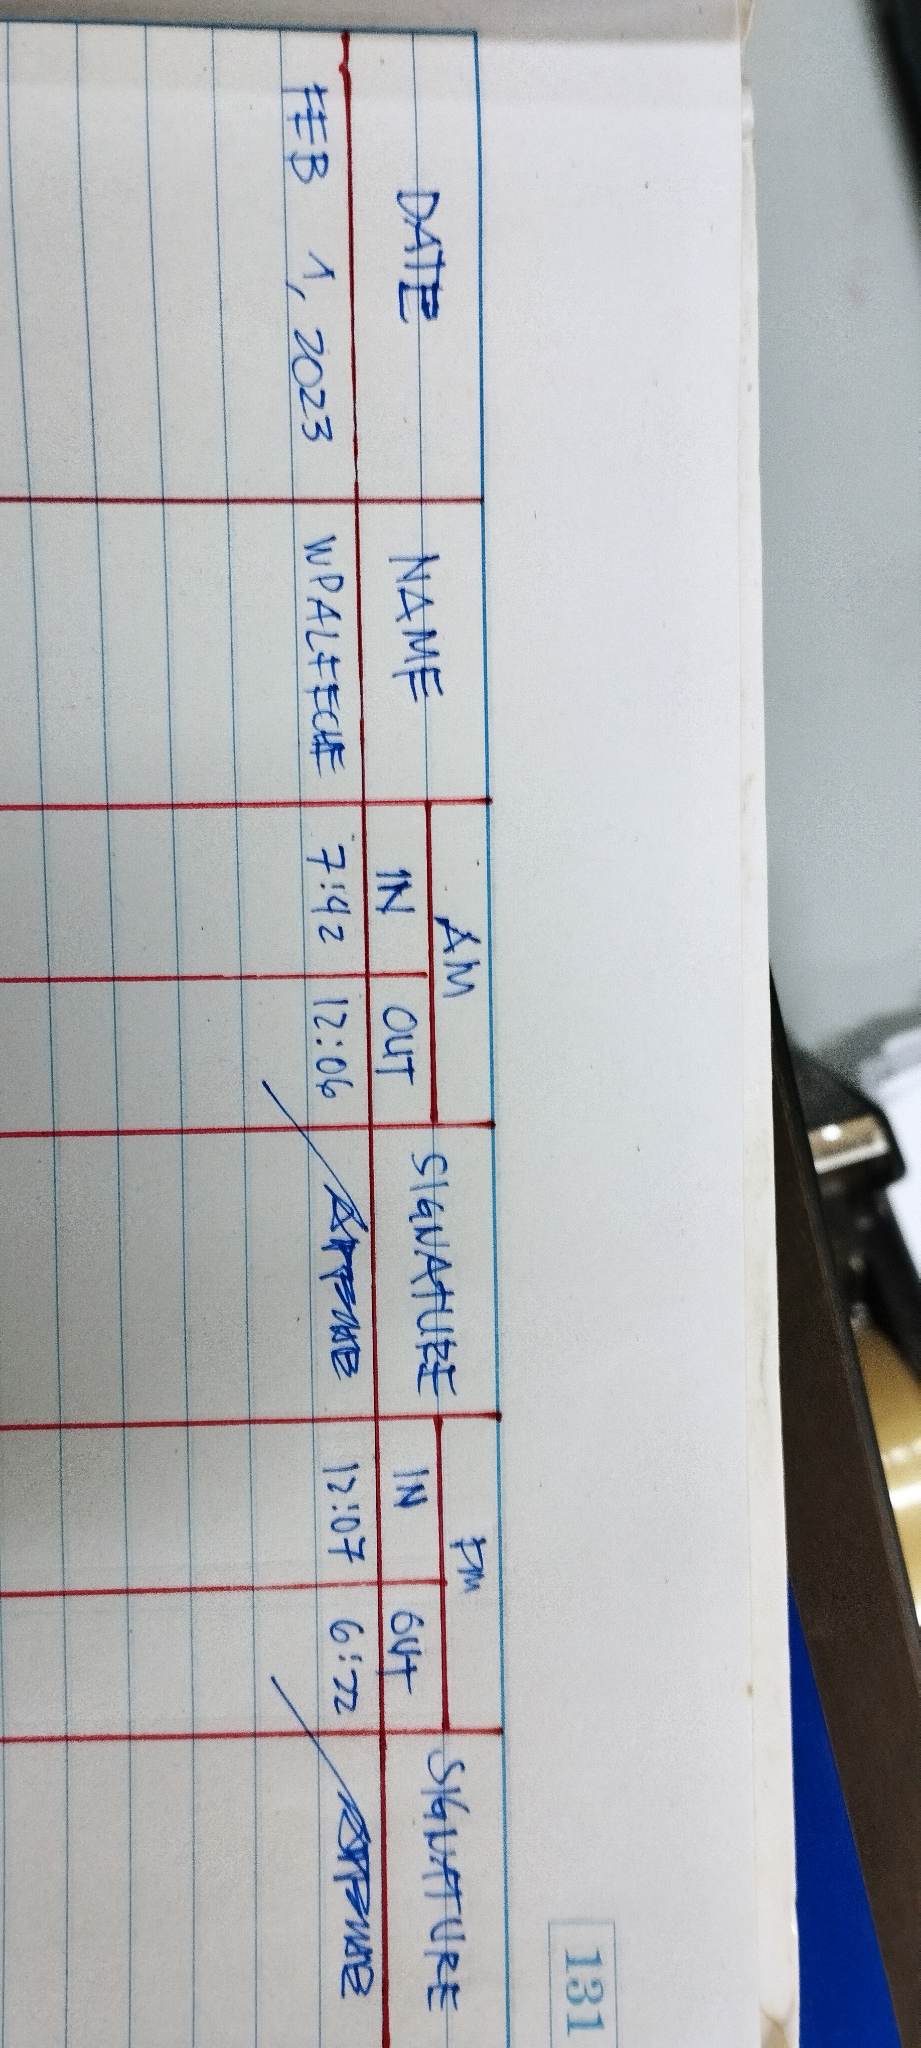 131
AM PM
DATE NAME IN OUT SIGNATURE IN OUT SIGNATURE
FEB 1, 2023 WPALFECHE 7:42 12:06 12:07 6:22